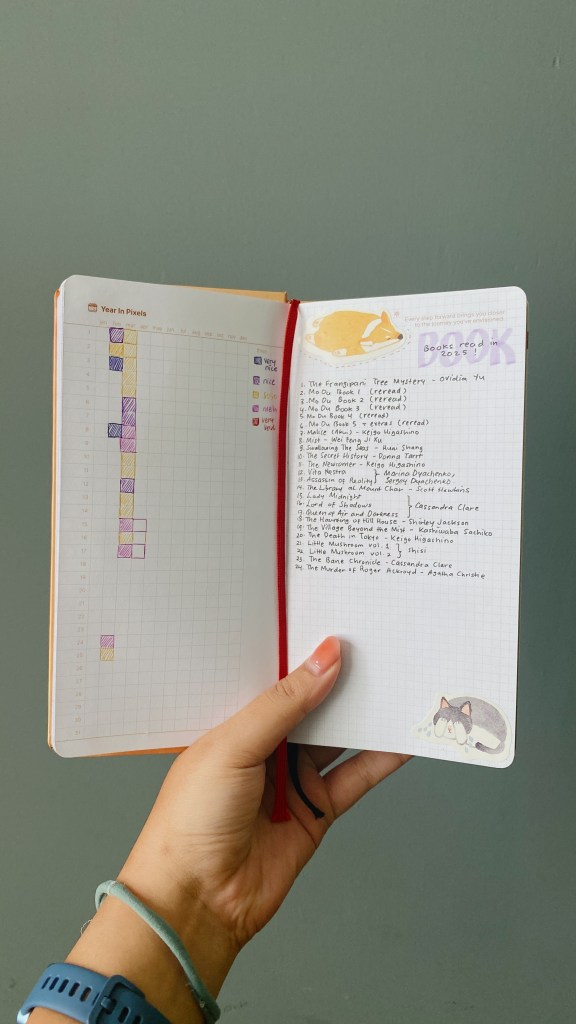 Year In Pixels
very nice
nice
meh
BOOK
Books read in
2025 !
1. The Frangipani Tree Mystery - Ovidia Yu
2. Mo Du Book 1 (reread)
3. Mo Du Book 2 (reread)
4. Mo Du Book 3 (reread)
5. Mo Du Book 4 (reread)
6. Mo Du Book 5 + extras (reread)
7. Malice - Keigo Higashino
8. Mist - Wei Feng Ji Xu
9. Swallowing The Seas - Huai Shang
10. The Secret History - Donna Tartt
11. The Newcomer - Keigo Higashino
12. Vita Nostra } Marina Dyachenko,
13. Assassin of Reality } Sergey Dyachenko
14. The Library at Mount Char - Scott Hawkins
15. Lady Midnight
16. Lord of Shadows } Cassandra Clare
17. Queen of Air and Darkness
18. The Haunting of Hill House - Shirley Jackson
19. The Village Beyond the Mist - Kashiwaba Sachiko
20. The Death in Tokyo - Keigo Higashino
21. Little Mushroom vol. 1
22. Little Mushroom vol. 2 } Shisi
23. The Bane Chronicle - Cassandra Clare
24. The Murder of Roger Ackroyd - Agatha Christie